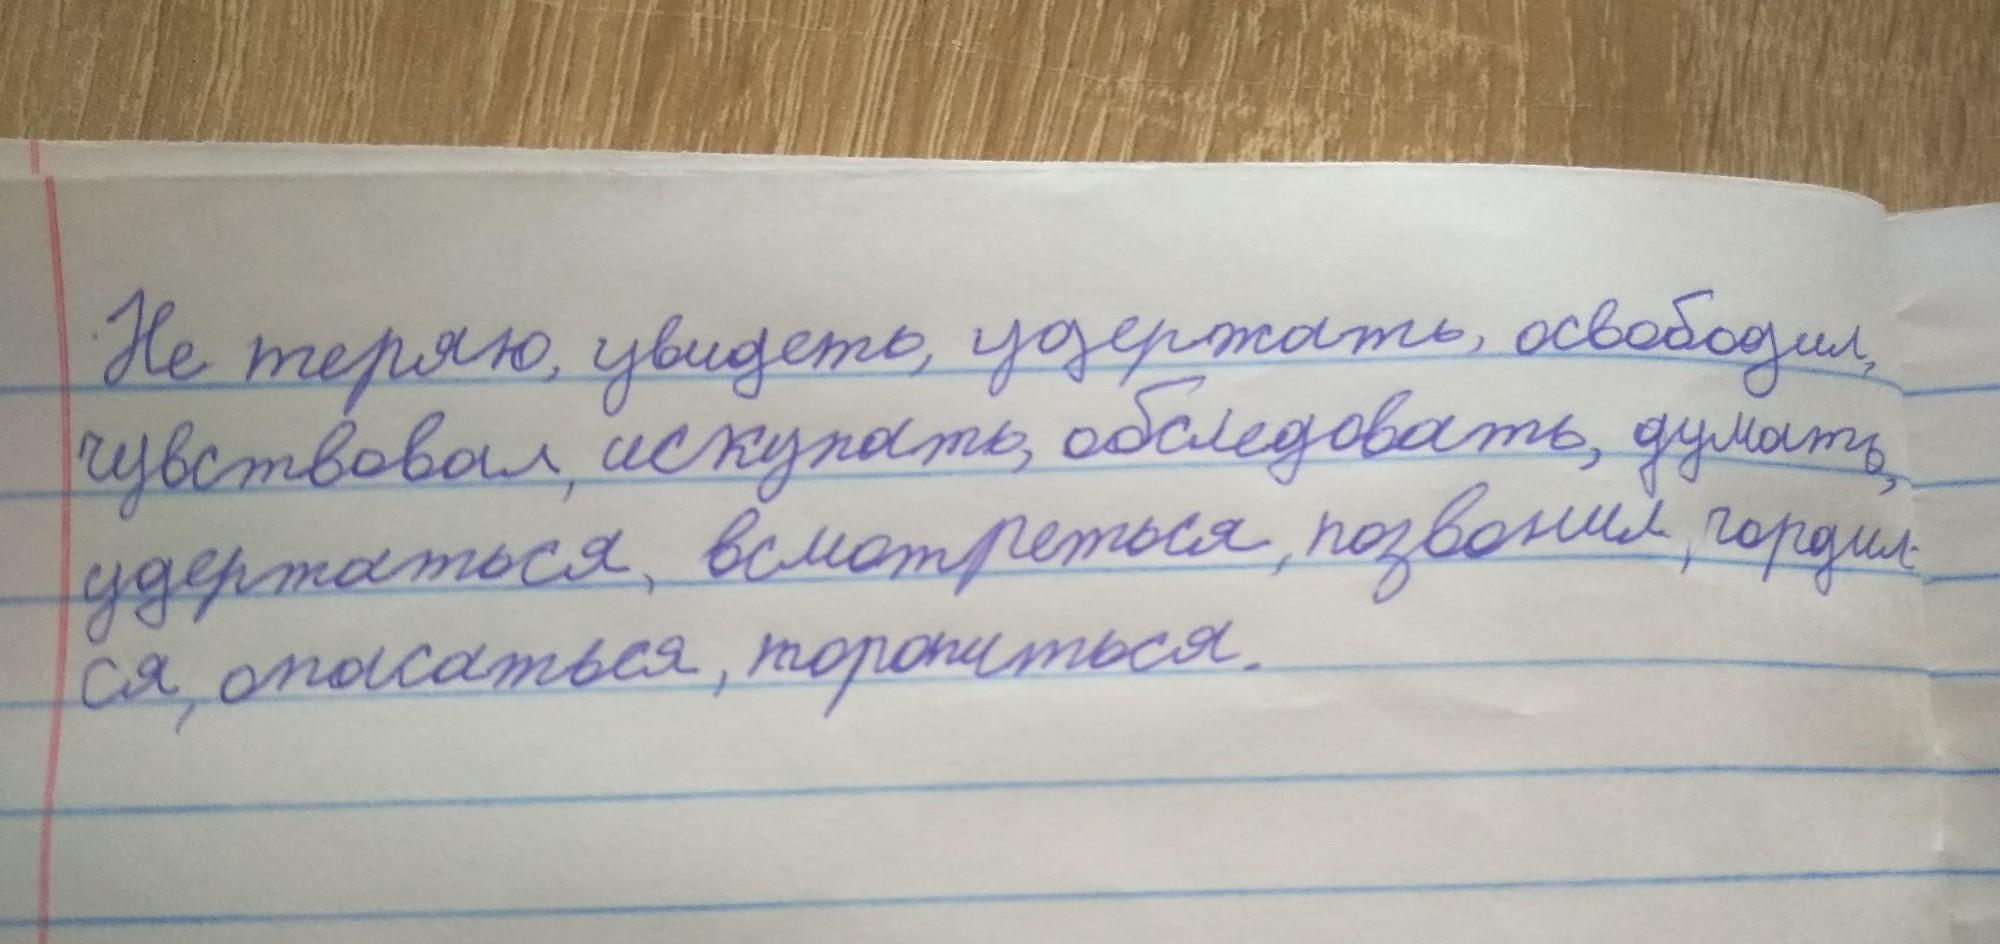 Не теряю, увидеть, удержать, освободил,
чувствовал, искупать, обследовать, думать,
удержаться, всмотреться, позвонил, гордил-
ся, опасаться, торопиться.